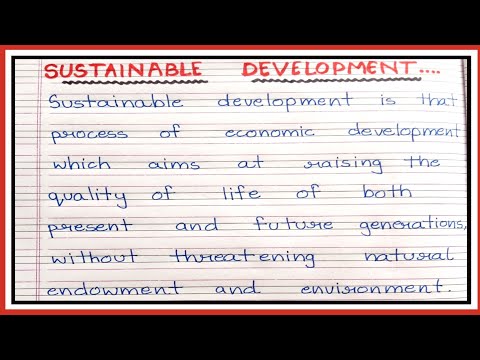 SUSTAINABLE DEVELOPMENT....
Sustainable development is that
process of economic development
which aims at raising the
quality of life of both
present and future generations,
without threatening natural
endowment and environment.